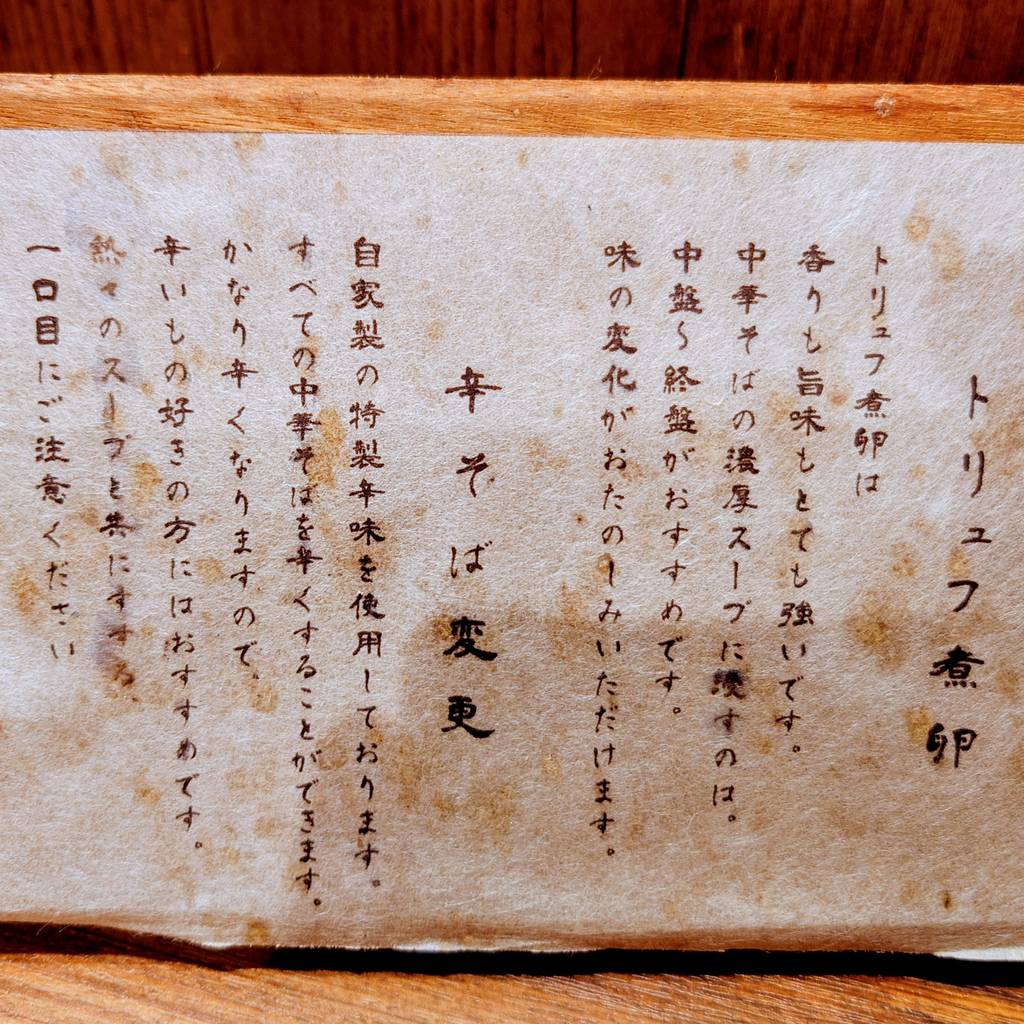 トリュフ煮卵
トリュフ煮卵は
香りも旨味もとても強いです。
中華そばの濃厚スープに浸すのは。
中盤〜終盤がおすすめです。
味の変化がおたのしみいただけます。
辛そば変更
自家製の特製辛味を使用しております。
すべての中華そばを辛くすることができます。
かなり辛くなりますので、
辛いもの好きの方にはおすすめです。
熱々のスープと共にすする、
一口目にご注意ください